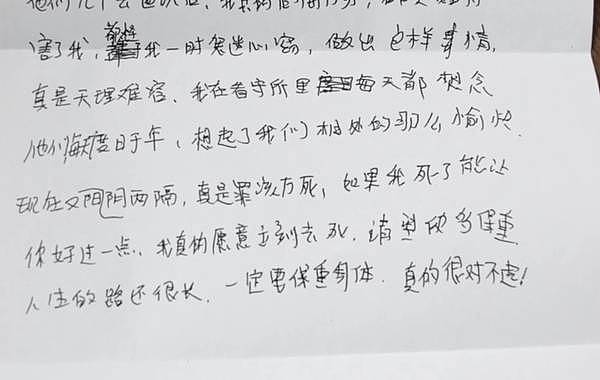 害了我，我一时鬼迷心窍，做出这样事情，
真是天理难容、我在看守所里每天都想念
他们，每度日于年，想起了我们相处的那么愉快.
现在又阴阴两隔，真是罪该万死，如果我死了能让
你好过一点、我真的愿意立刻去死.请坚强多保重
人生的路还很长.一定要保重身体.真的很对不起！